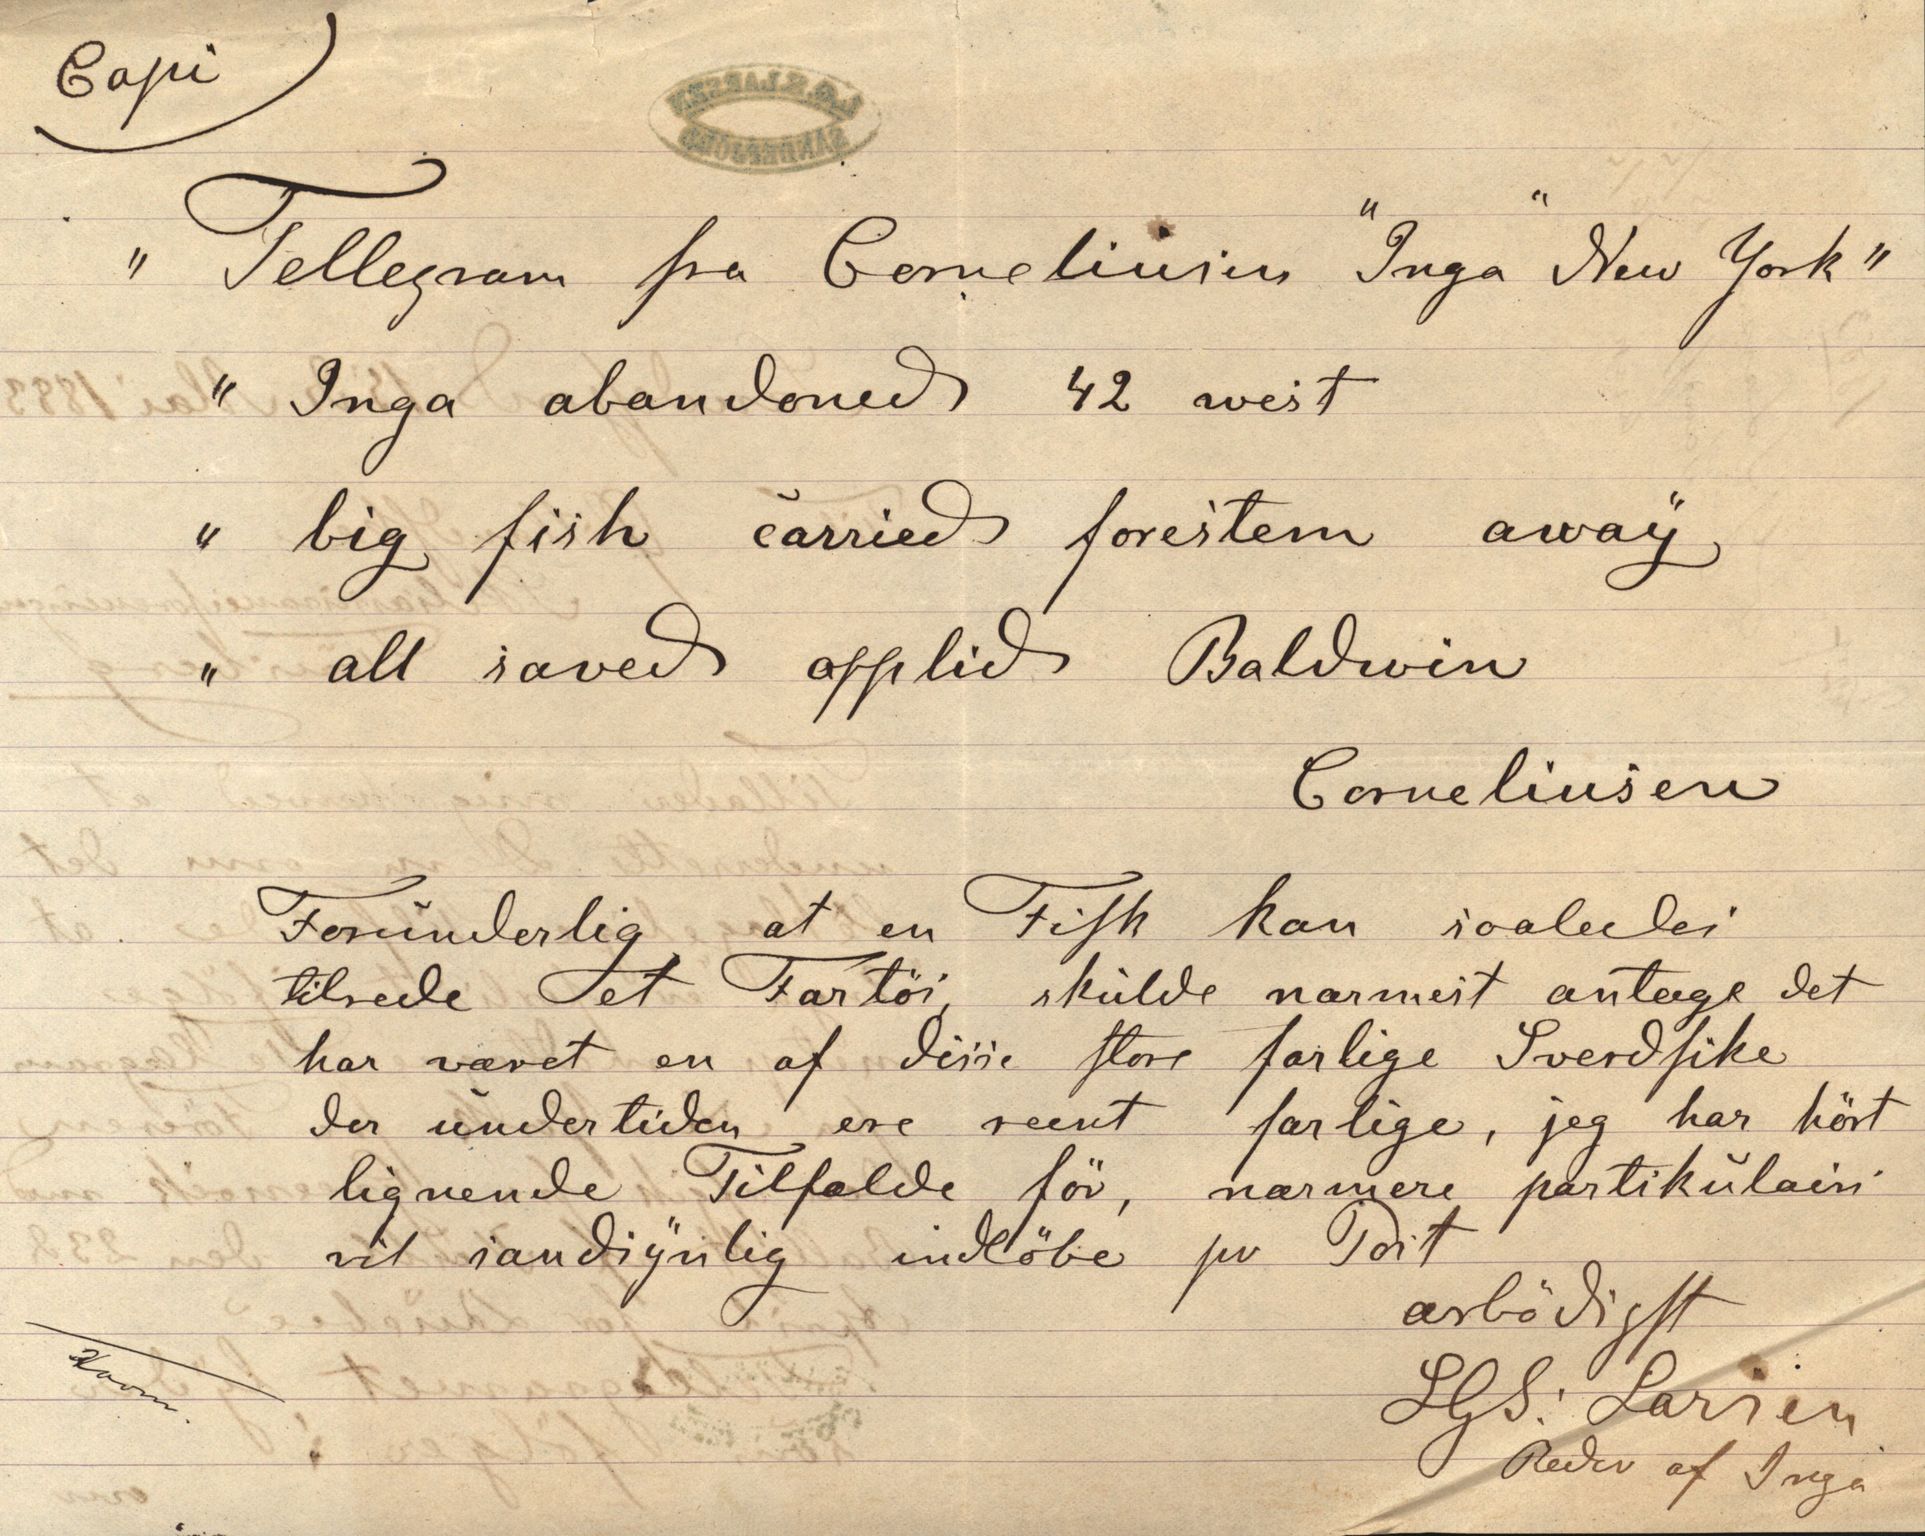 Copi
" Tellegram fra Corneliusen "Inga" New York"
" Inga abandoned 42 west
" big fish carried forestem away
" all saved applid Baldwin
Corneliusen
Foründerlig at en Fisk kan saaledes
tilrede et Fartöi, skülde nærmest antage det
har været en af disse store farlige Sverdfike
der ündertiden ere reent farlige, jeg har hört
lignende Tilfælde för, nærmere partikülairs
vil sandsÿnlig indlöbe pr Post
ærbödigst
LGS: Larsen
Reder af Inga